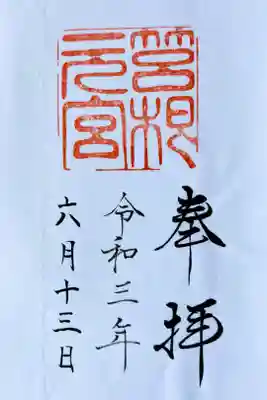 筥根
元宮
奉拝
令和三年
六月十三日